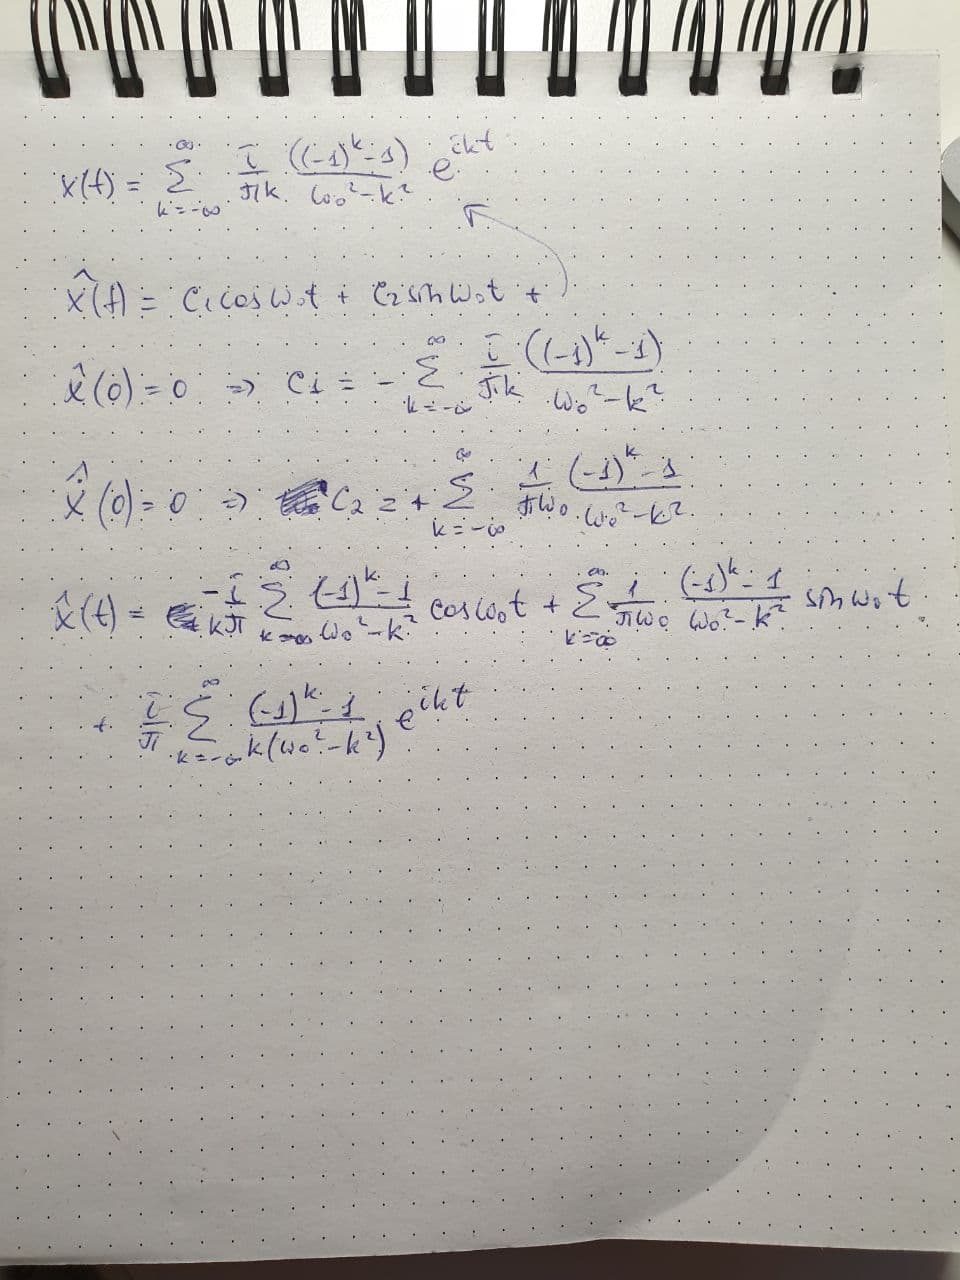 x(t) = ∑_{k=-∞}^{∞} \frac{i}{πk} \frac{((-1)^k - 1)}{ω_0^2 - k^2} e^{ikt}
\hat{x}(t) = C_1 cos ω_0 t + C_2 sin ω_0 t +
\hat{x}(0) = 0 => C_1 = - ∑_{k=-∞}^{∞} \frac{i}{πk} \frac{((-1)^k - 1)}{ω_0^2 - k^2}
\dot{\hat{x}}(0) = 0 => C_2 = + ∑_{k=-∞}^{∞} \frac{1}{πω_0} \frac{(-1)^k - 1}{ω_0^2 - k^2}
\hat{x}(t) = \frac{-i}{kπ} ∑_{k=-∞}^{∞} \frac{(-1)^k - 1}{ω_0^2 - k^2} cos ω_0 t + ∑_{k=-∞}^{∞} \frac{1}{πω_0} \frac{(-1)^k - 1}{ω_0^2 - k^2} sin ω_0 t
+ \frac{i}{π} ∑_{k=-∞}^{∞} \frac{(-1)^k - 1}{k(ω_0^2 - k^2)} e^{ikt}